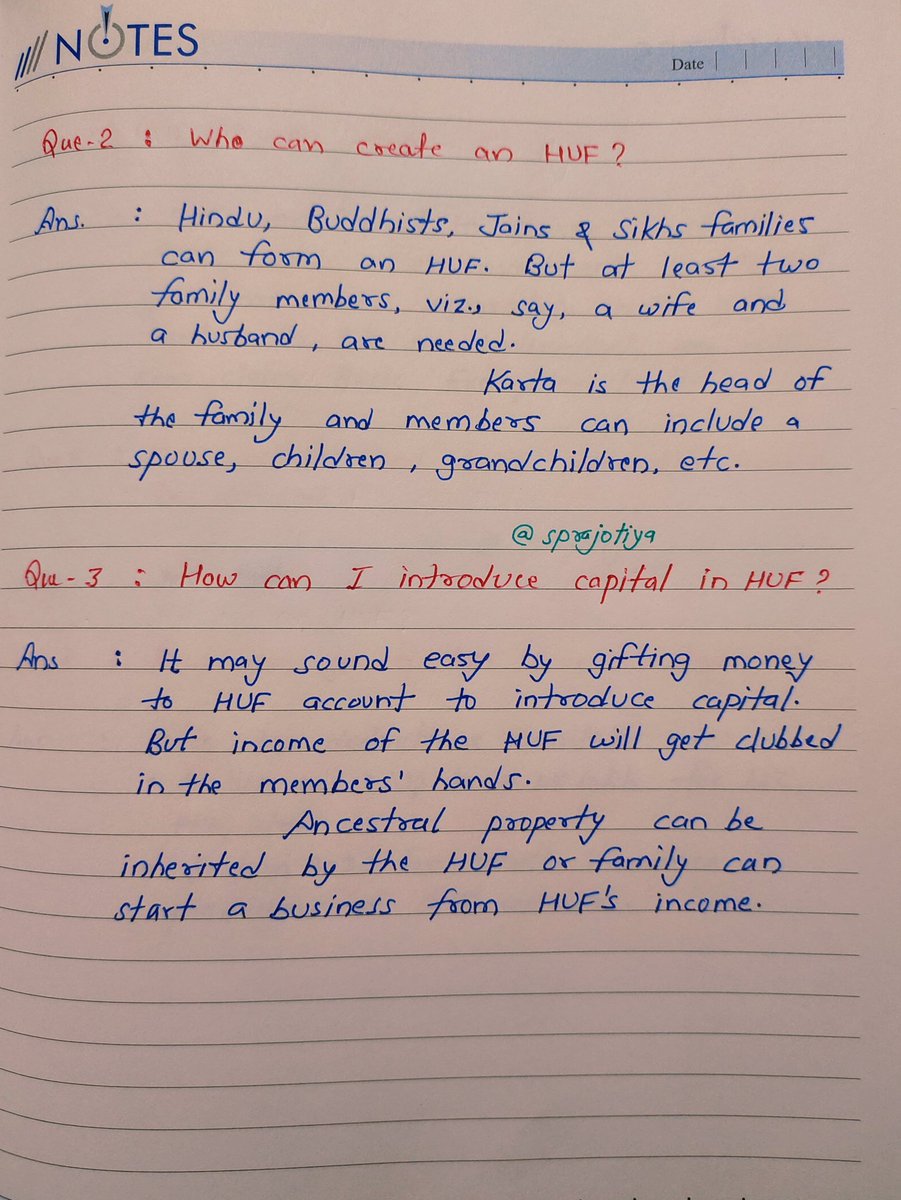 NOTES
Date
Que-2 : Who can create an HUF ?
Ans. : Hindu, Buddhists, Jains & Sikhs families
can form an HUF. But at least two
family members, viz., say, a wife and
a husband, are needed.
Karta is the head of
the family and members can include a
spouse, children, grandchildren, etc.
@sprajotiya
Que-3 : How can I introduce capital in HUF ?
Ans : It may sound easy by gifting money
to HUF account to introduce capital.
But income of the HUF will get clubbed
in the members' hands.
Ancestral property can be
inherited by the HUF or family can
start a business from HUF's income.